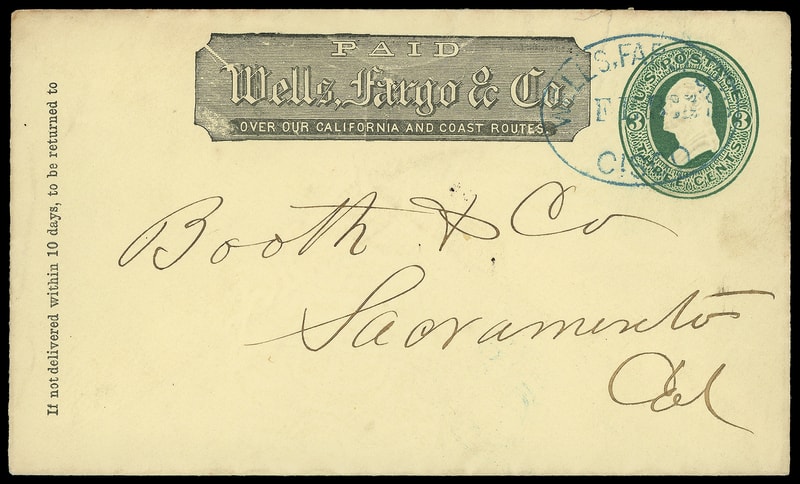 PAID
Wells, Fargo & Co.
OVER OUR CALIFORNIA AND COAST ROUTES.
WELLS, FAR
CISCO
U.S. POSTAGE
3 3
CENTS
Booth & Co
Sacramento
Cal
If not delivered within 10 days, to be returned to